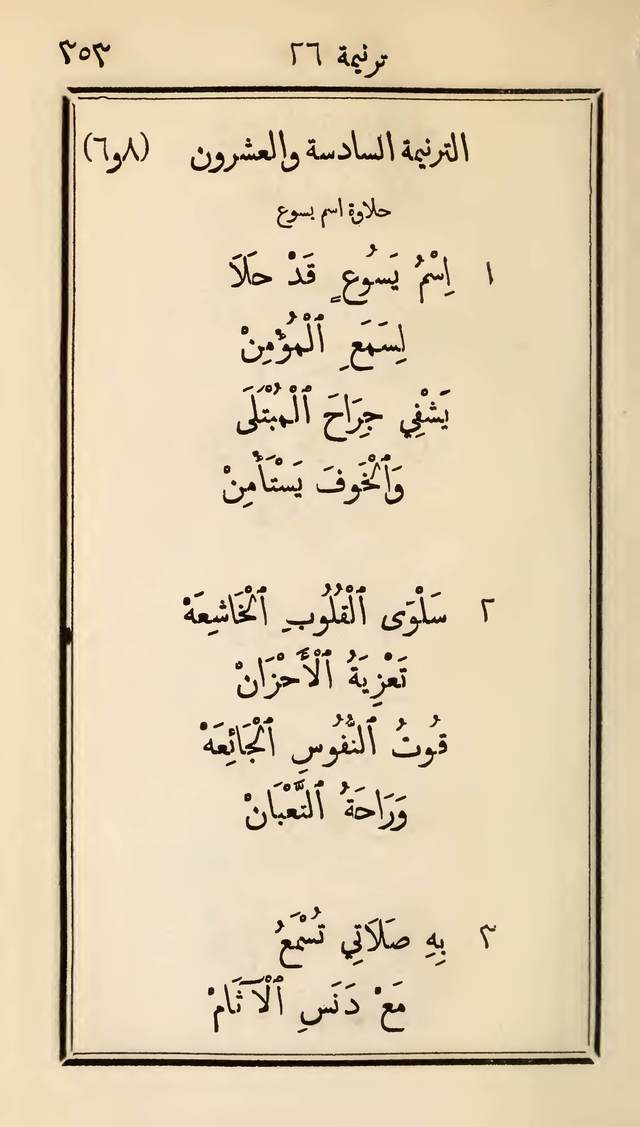 ترنيمة ٢٦ ٣٥٣
الترنيمة السادسة والعشرون (٨و٦)
حلاوة اسم يسوع
١ اِسْمُ يَسُوعٍ قَدْ حَلَا
لِسَمَعِ ٱلْمُؤْمِنْ
يَشْفِي جِرَاحَ ٱلْمُبْتَلَى
وَٱلْخَوفَ يَسْتَأْمِنْ
٢ سَلْوَى ٱلْقُلُوبِ ٱلْخَاشِعَهْ
تَعْزِيَةُ ٱلْأَحْزَانْ
قُوتُ ٱلنُّفُوسِ ٱلْجَائِعَهْ
وَرَاحَةُ ٱلتَّعْبَانْ
٣ بِهِ صَلَاتِي تُسْمَعُ
مَعْ دَنَسِ ٱلْآثَامْ